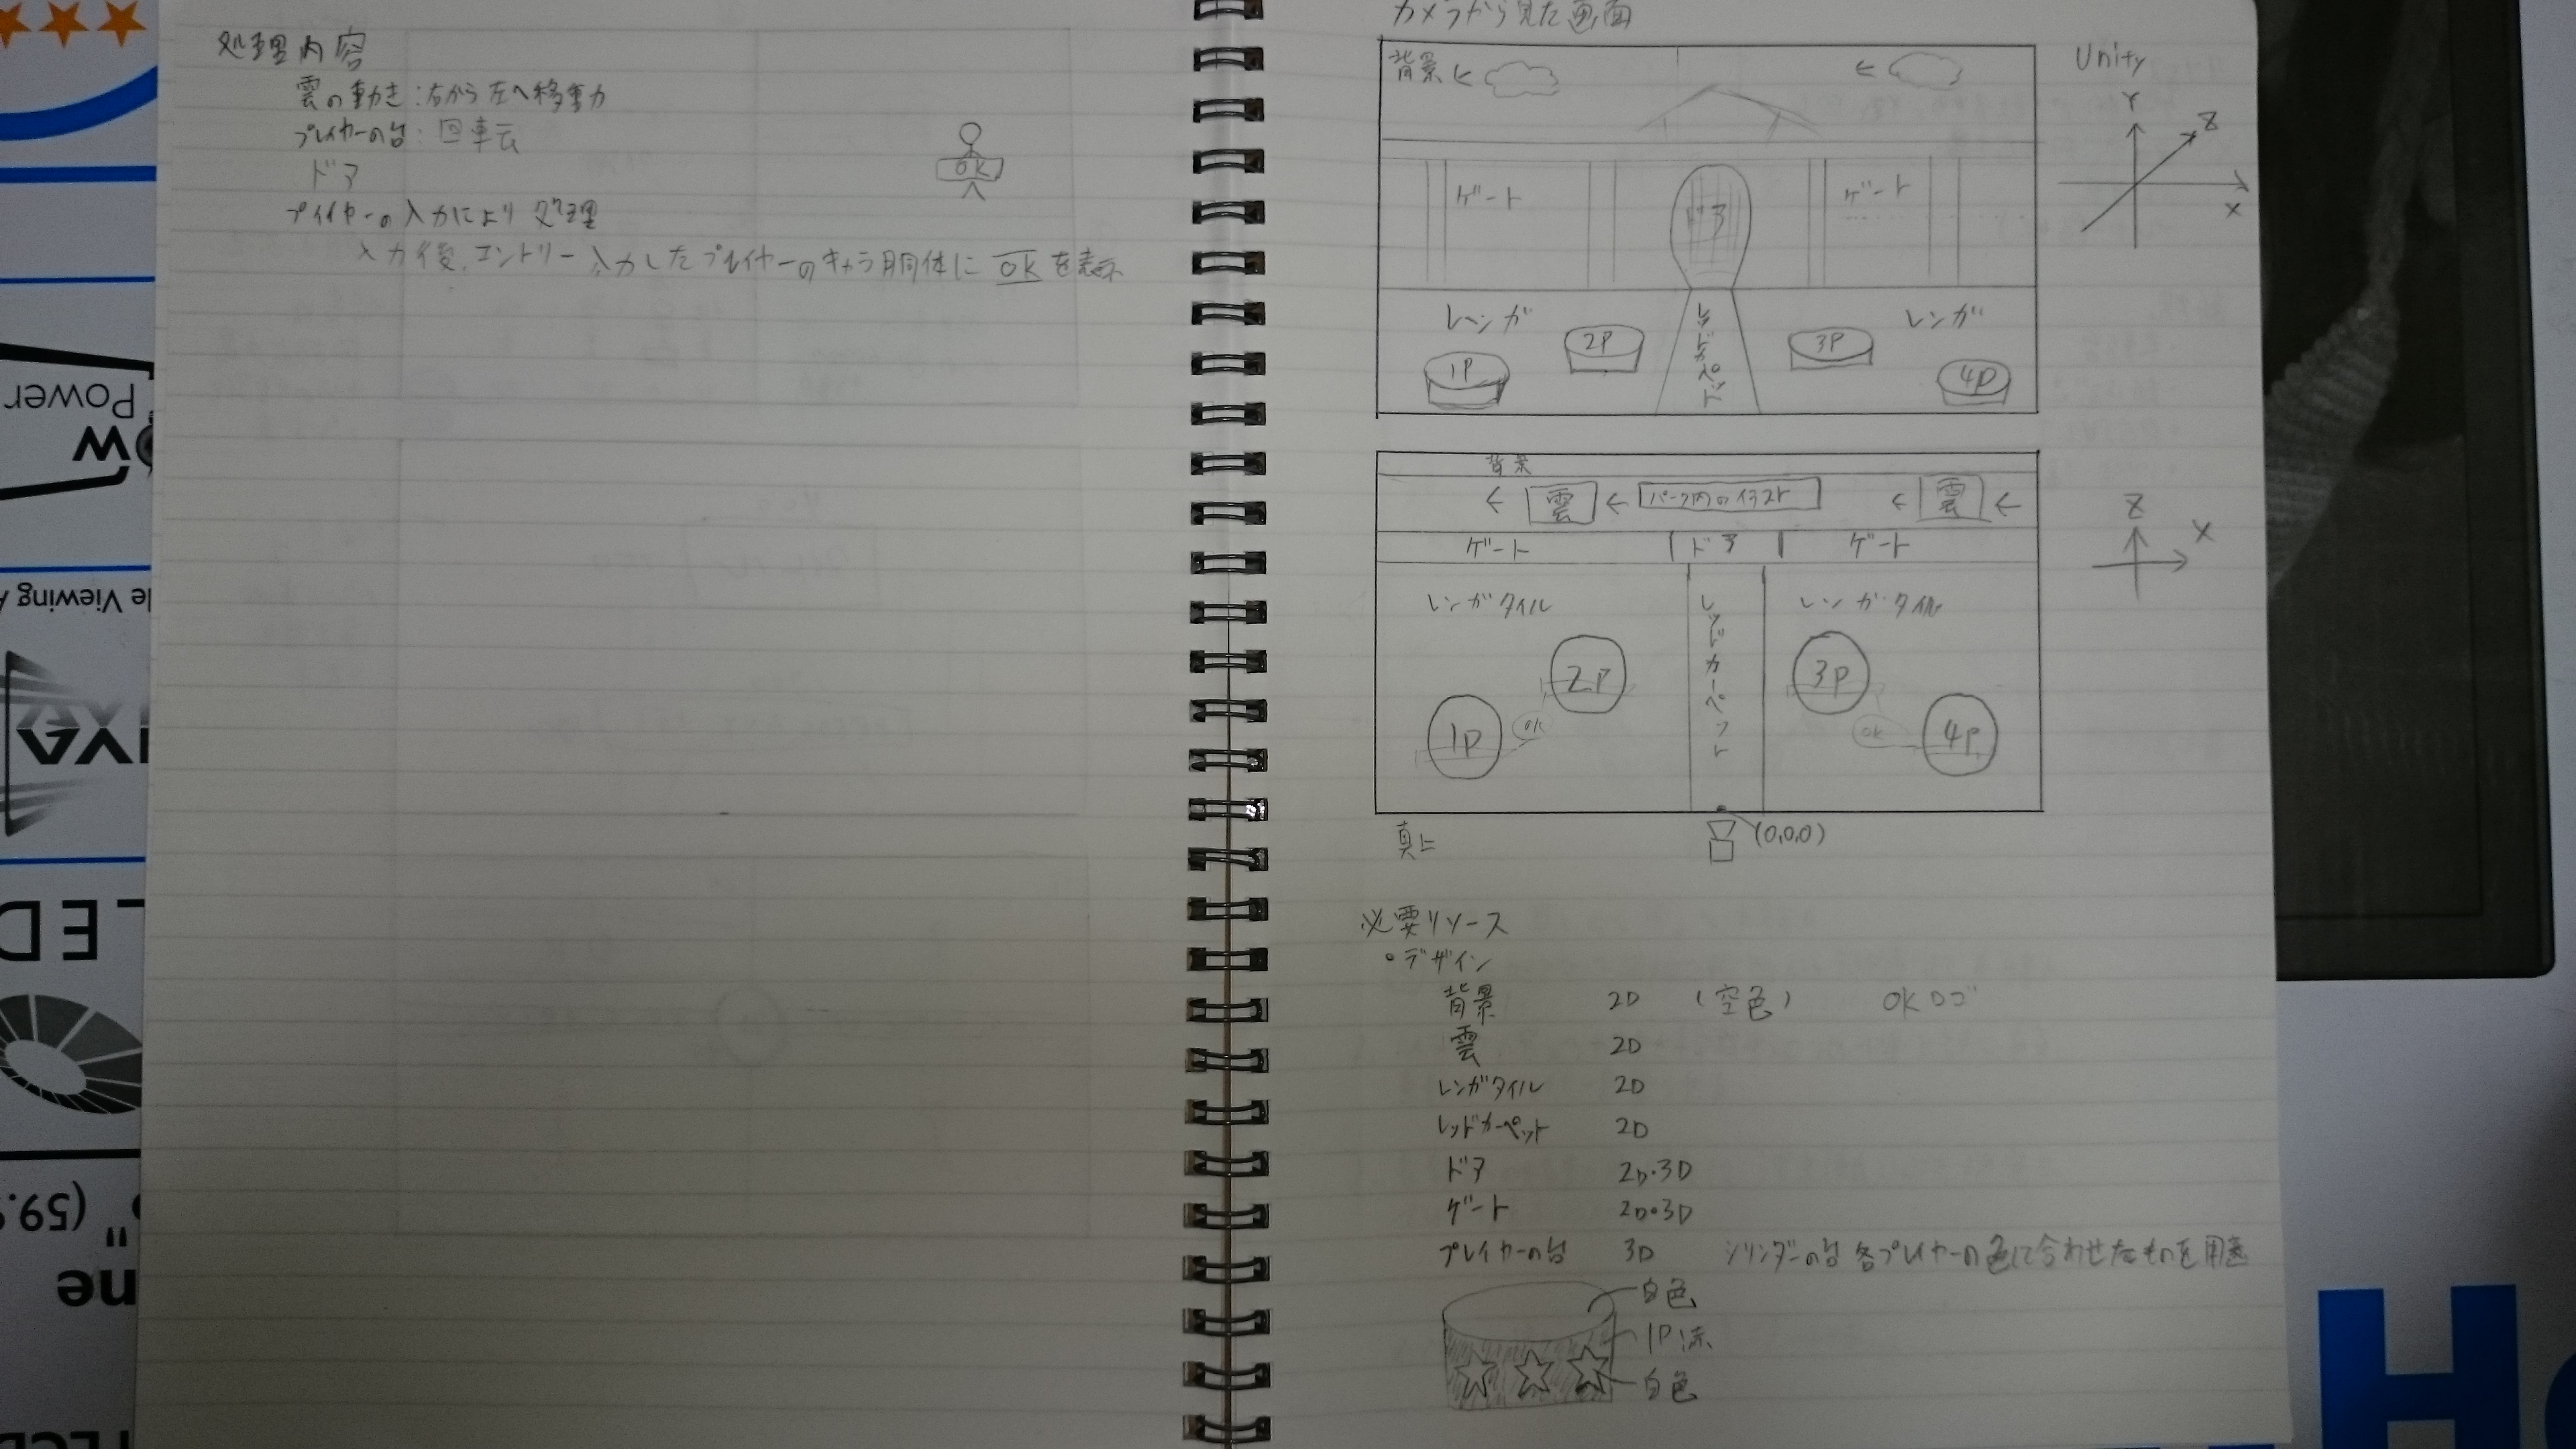 処理内容
雲の動き:右から左へ移動
プレイヤーの台:回転
ドア
プレイヤーの入力により処理
入力後、エントリー入力したプレイヤーのキャラ胴体に OK を表示
OK
カメラから見た画面
背景
ゲート
ドア
ゲート
レンガ
レンガ
レッドカーペット
1P
2P
3P
4P
Unity
Y
Z
X
背景
雲
パーク内のイラスト
雲
ゲート
ドア
ゲート
レンガタイル
レンガタイル
レッドカーペット
2P
3P
1P
OK
OK
4P
Z
X
真上
(0,0,0)
必要リソース
・デザイン
背景 2D (空色) OKロゴ
雲 2D
レンガタイル 2D
レッドカーペット 2D
ドア 2D・3D
ゲート 2D・3D
プレイヤーの台 3D シリンダーの台 各プレイヤーの色に合わせたものを用意
白色
1P 赤
白色
Power
LED